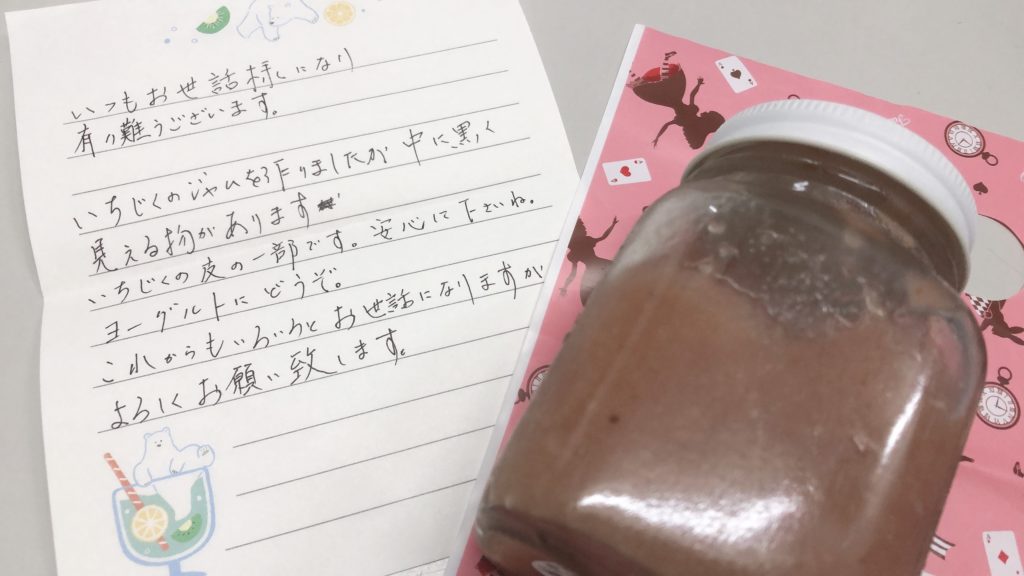 いつもお世話様になり
有り難うございます。
いちじくのジャムを作りましたが中に黒く
見える物があります
いちじくの皮の一部です。安心して下さいね。
ヨーグルトにどうぞ。
これからもいろいろとお世話になりますが
よろしくお願い致します。